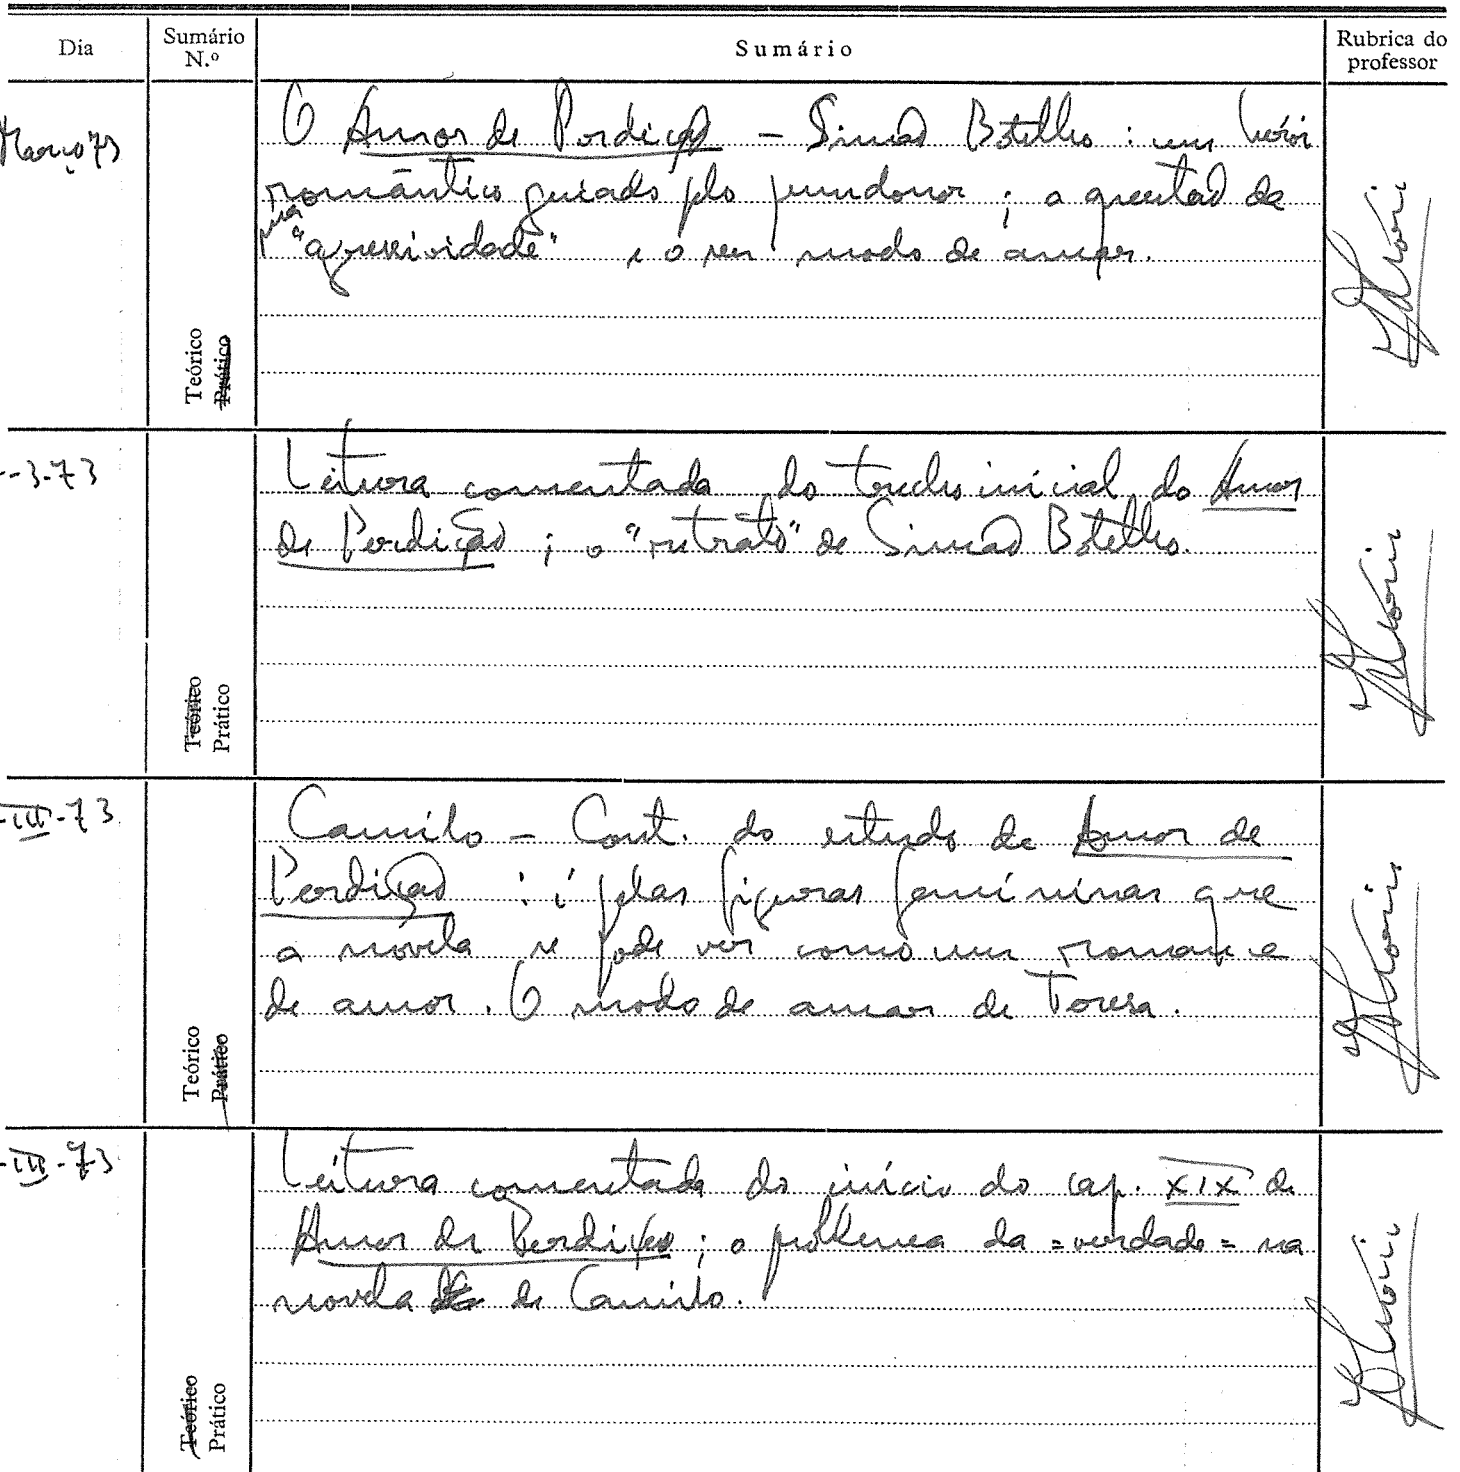 Dia Sumário N.º Sumário Rubrica do professor
Março 73
O Amor de Perdição – Simão Botelho : um herói
romântico guiado plo pundonor ; a questão da
sua "agressividade" e o seu modo de amar.
Teórico
Prático
-3-73
Leitura comentada do trecho inicial do Amor
de Perdição ; o "retrato" de Simão Botelho.
Teórico
Prático
-III-73
Camilo – Cont. do estudo de Amor de
Perdição : é plas figuras femininas que
a novela se pode ver como um romance
de amor. O modo de amar de Teresa.
Teórico
Prático
-III-73
Leitura comentada do início do cap. XIX de
Amor de Perdição ; o problema da =verdade= na
novela de Camilo.
Teórico
Prático